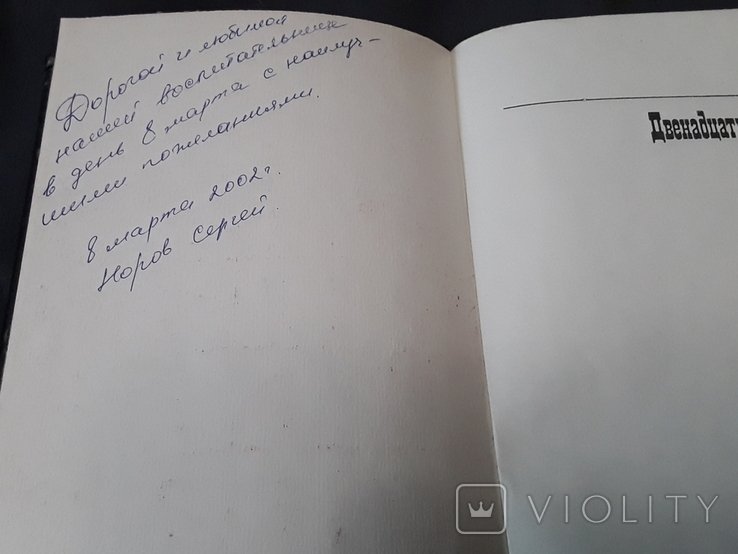 Дорогой и любимой
нашей воспитательнице
в день 8 марта с наилуч-
шими пожеланиями.
8 марта 2002 г.
Норов Сергей.
Двенадцат
VIOLITY